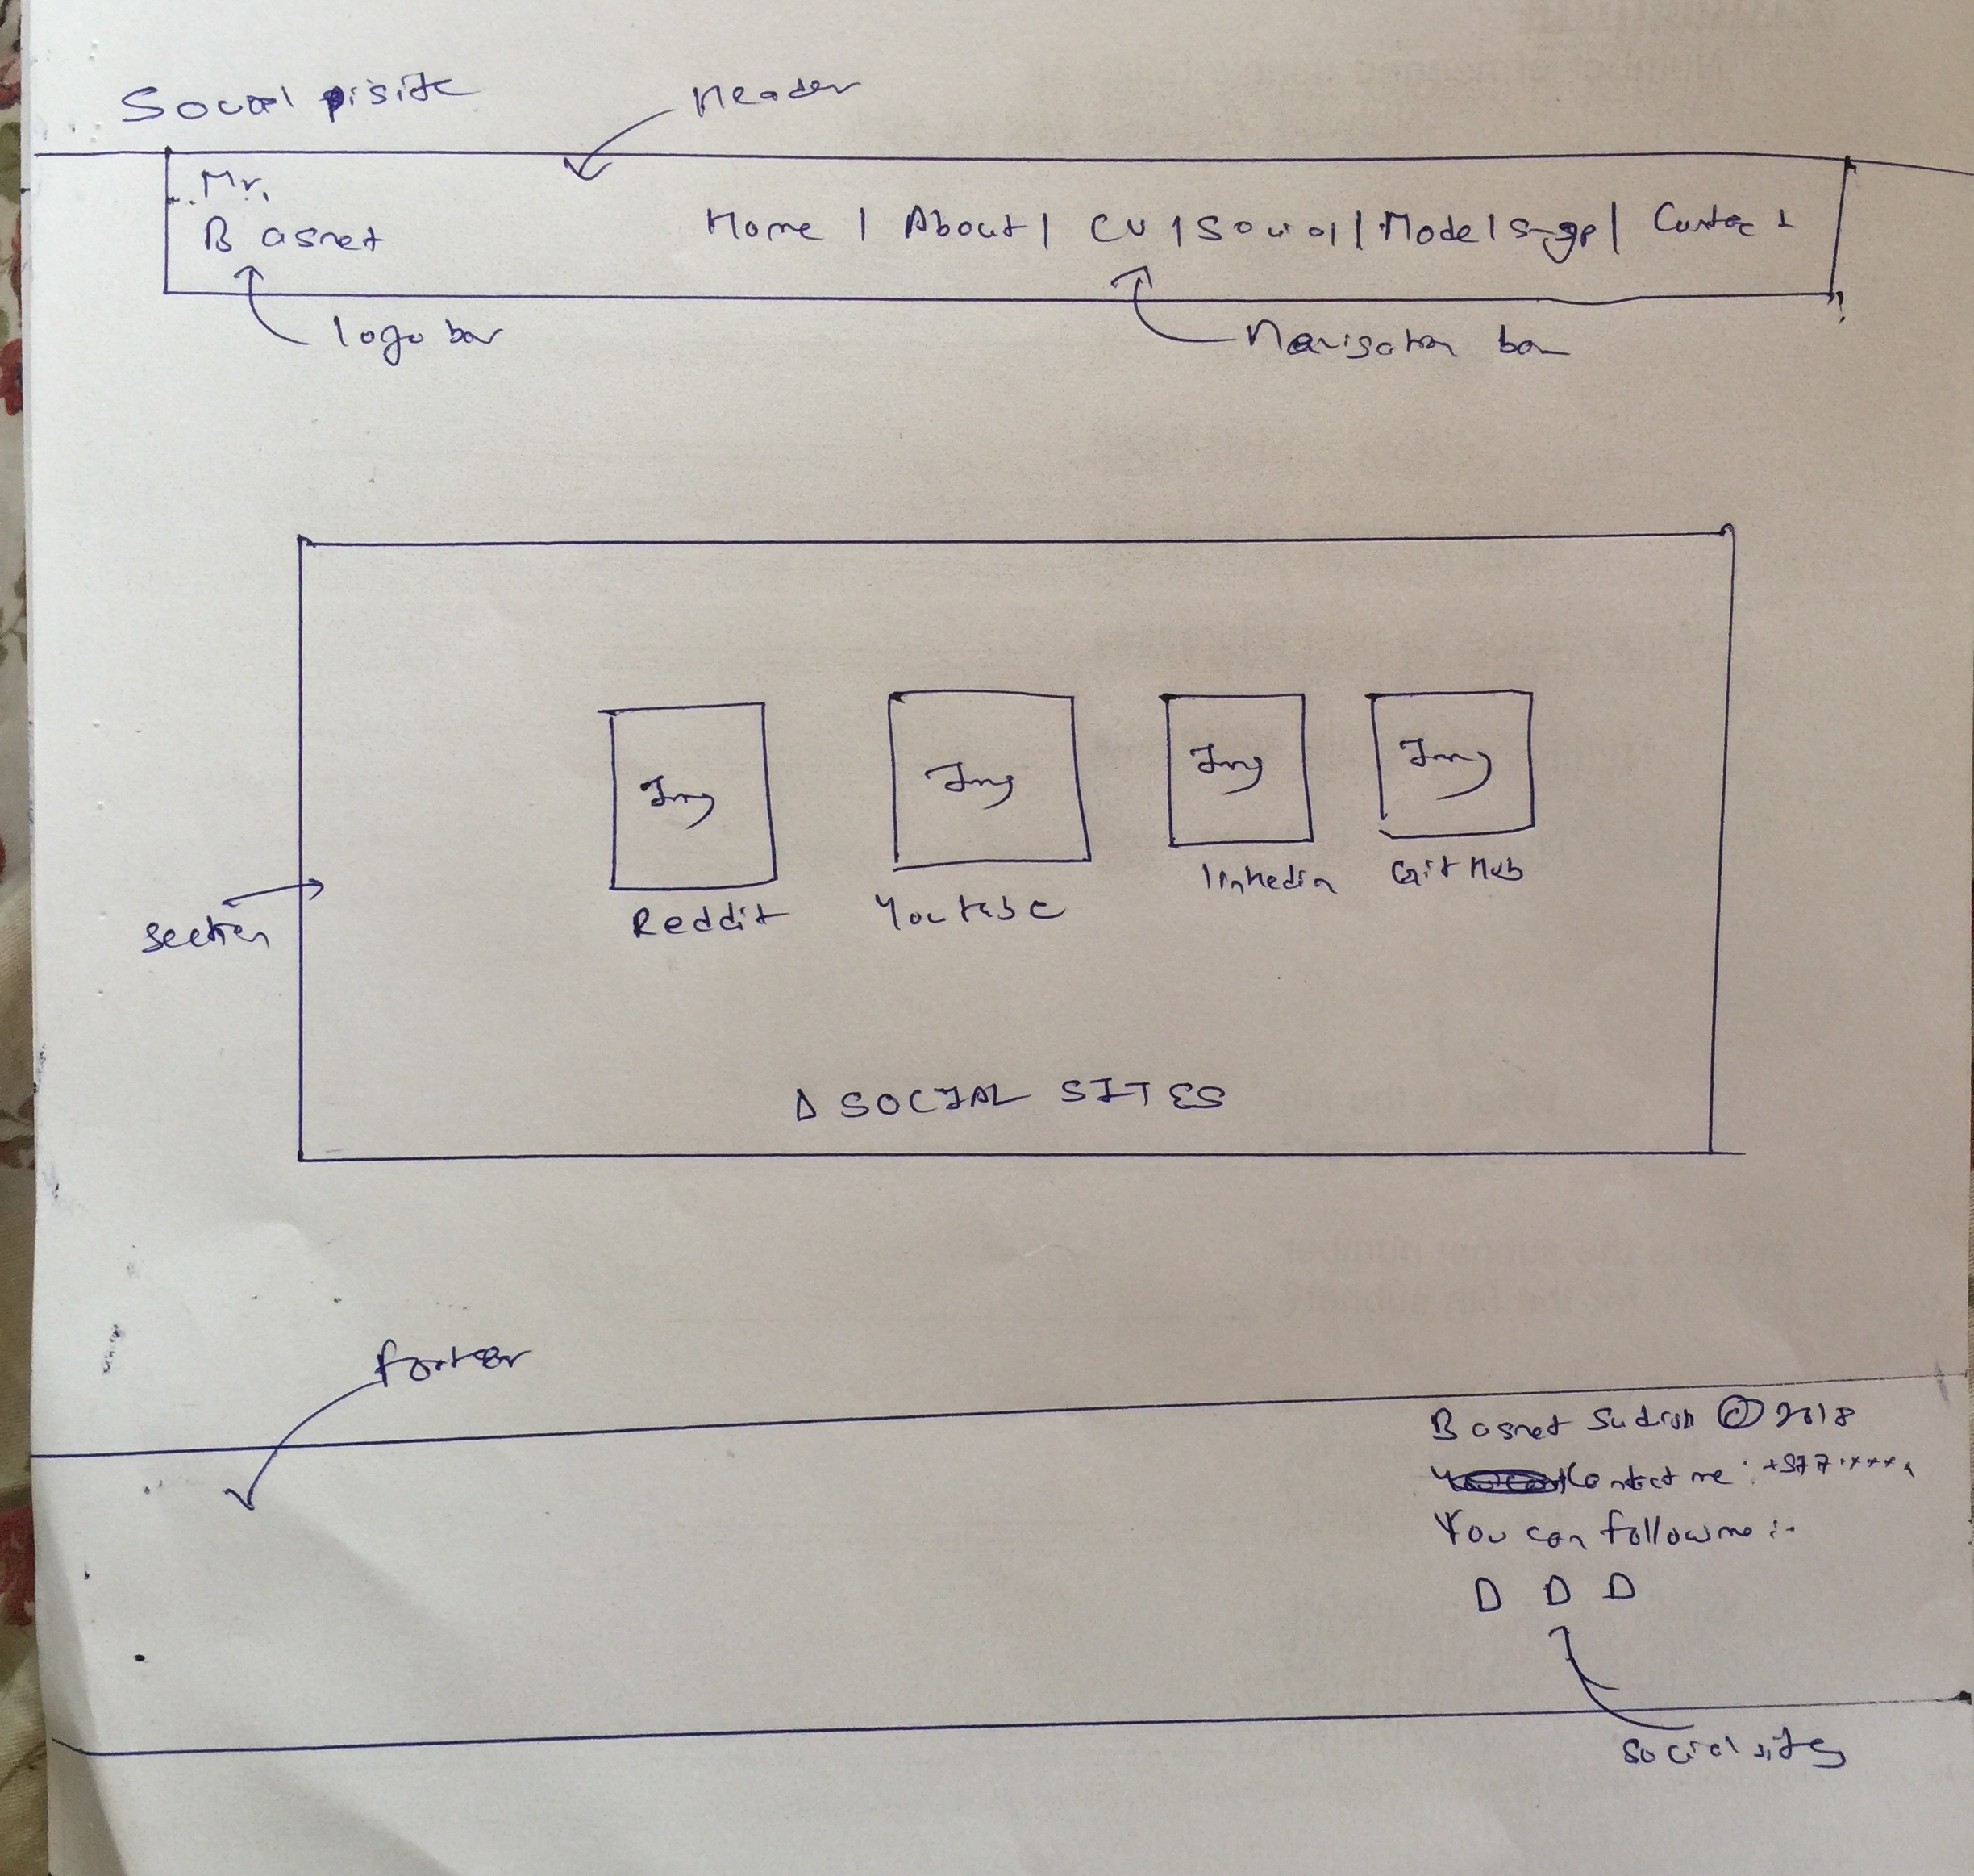 Social site
Header
Mr.
Basnet
Home | About | CV | Social | Models-gp | Contact
logo bar
Navigation bar
Img
Img
Img
Img
Reddit
Youtube
linkedin
GitHub
section
SOCIAL SITES
footer
Basnet Sudish © 2018
Contact me : +977xxxx
You can follow me :-
social sites